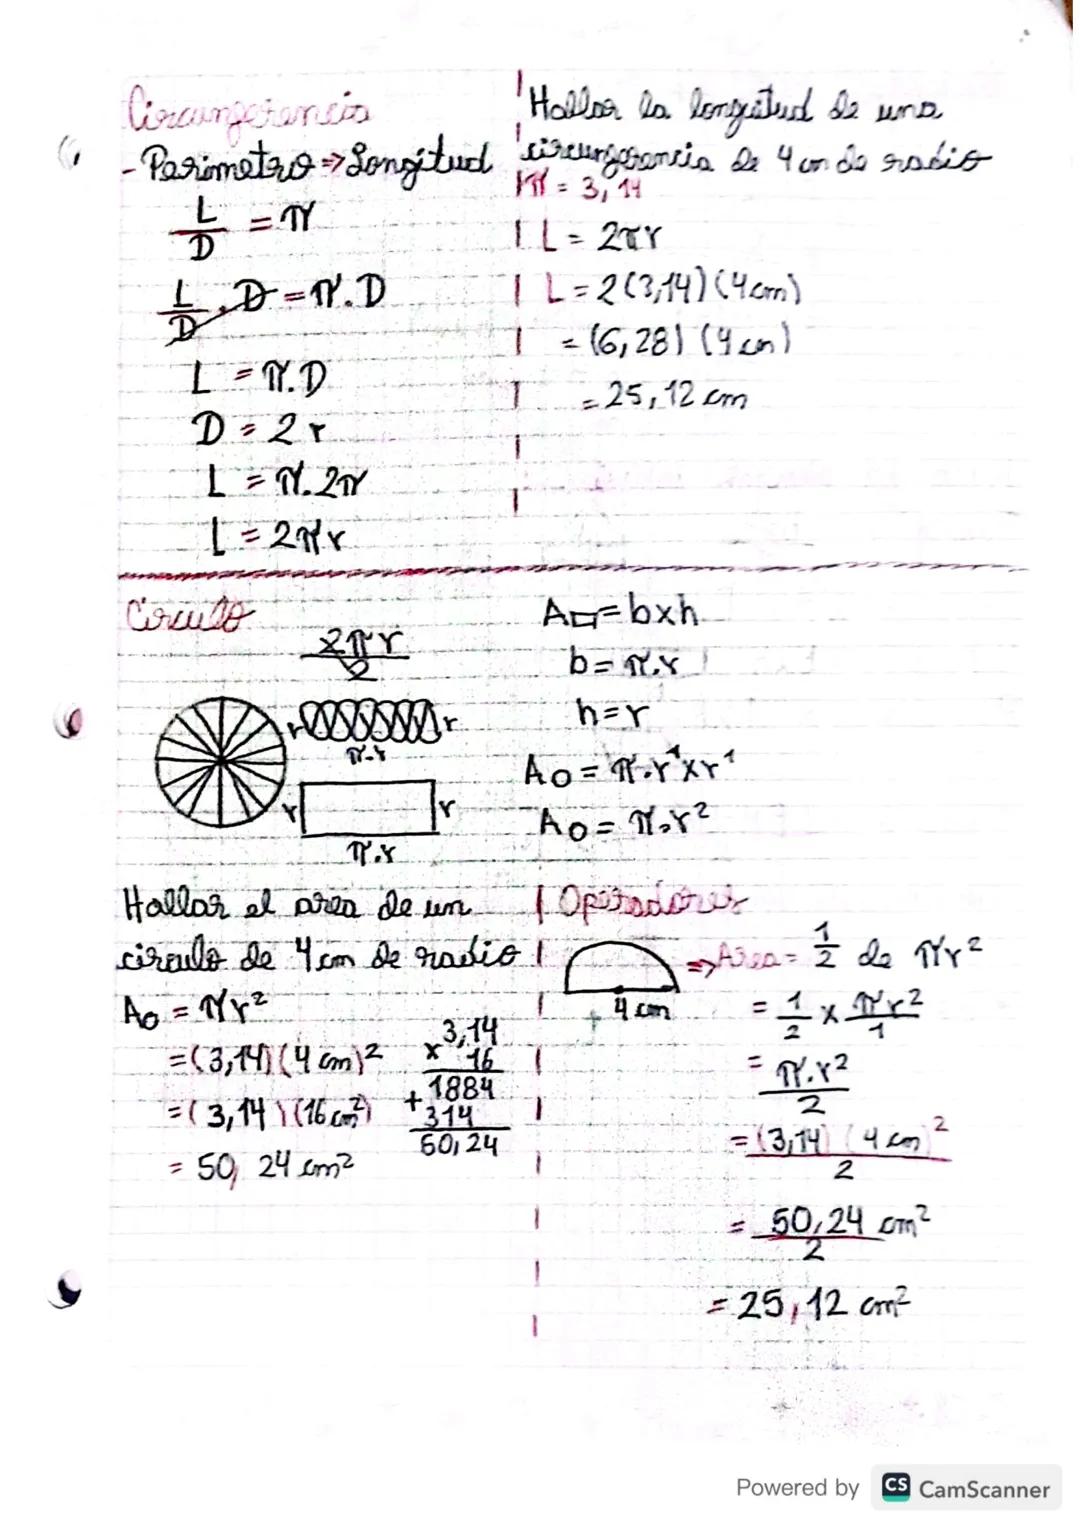 Circunferencia
- Perimetro ⇒ Longitud
L/D = π
L/D . D = π . D
L = π . D
D = 2 r
L = π . 2π
L = 2πr
Hallar la longitud de una
circunferencia de 4 cm de radio
π = 3,14
L = 2πr
L = 2(3,14)(4cm)
= (6,28) (4 cm)
= 25,12 cm
Circulo
2πr/2
r r
π.r
r r
π.r
A▭ = bxh
b = π.r
h = r
A○ = π.r¹xr¹
A○ = π.r²
Hallar el area de un
circulo de 4 cm de radio
A○ = πr²
= (3,14)(4 cm)²
= (3,14)(16 cm²)
= 50,24 cm²
3,14
x 16
1884
+ 314
50,24
Operadores
4 cm
⇒ Area = 1/2 de πr²
= 1/2 x πr²/1
= π.r²/2
= (3,14) (4 cm)²/2
= 50,24 cm²/2
= 25,12 cm²
Powered by CS CamScanner